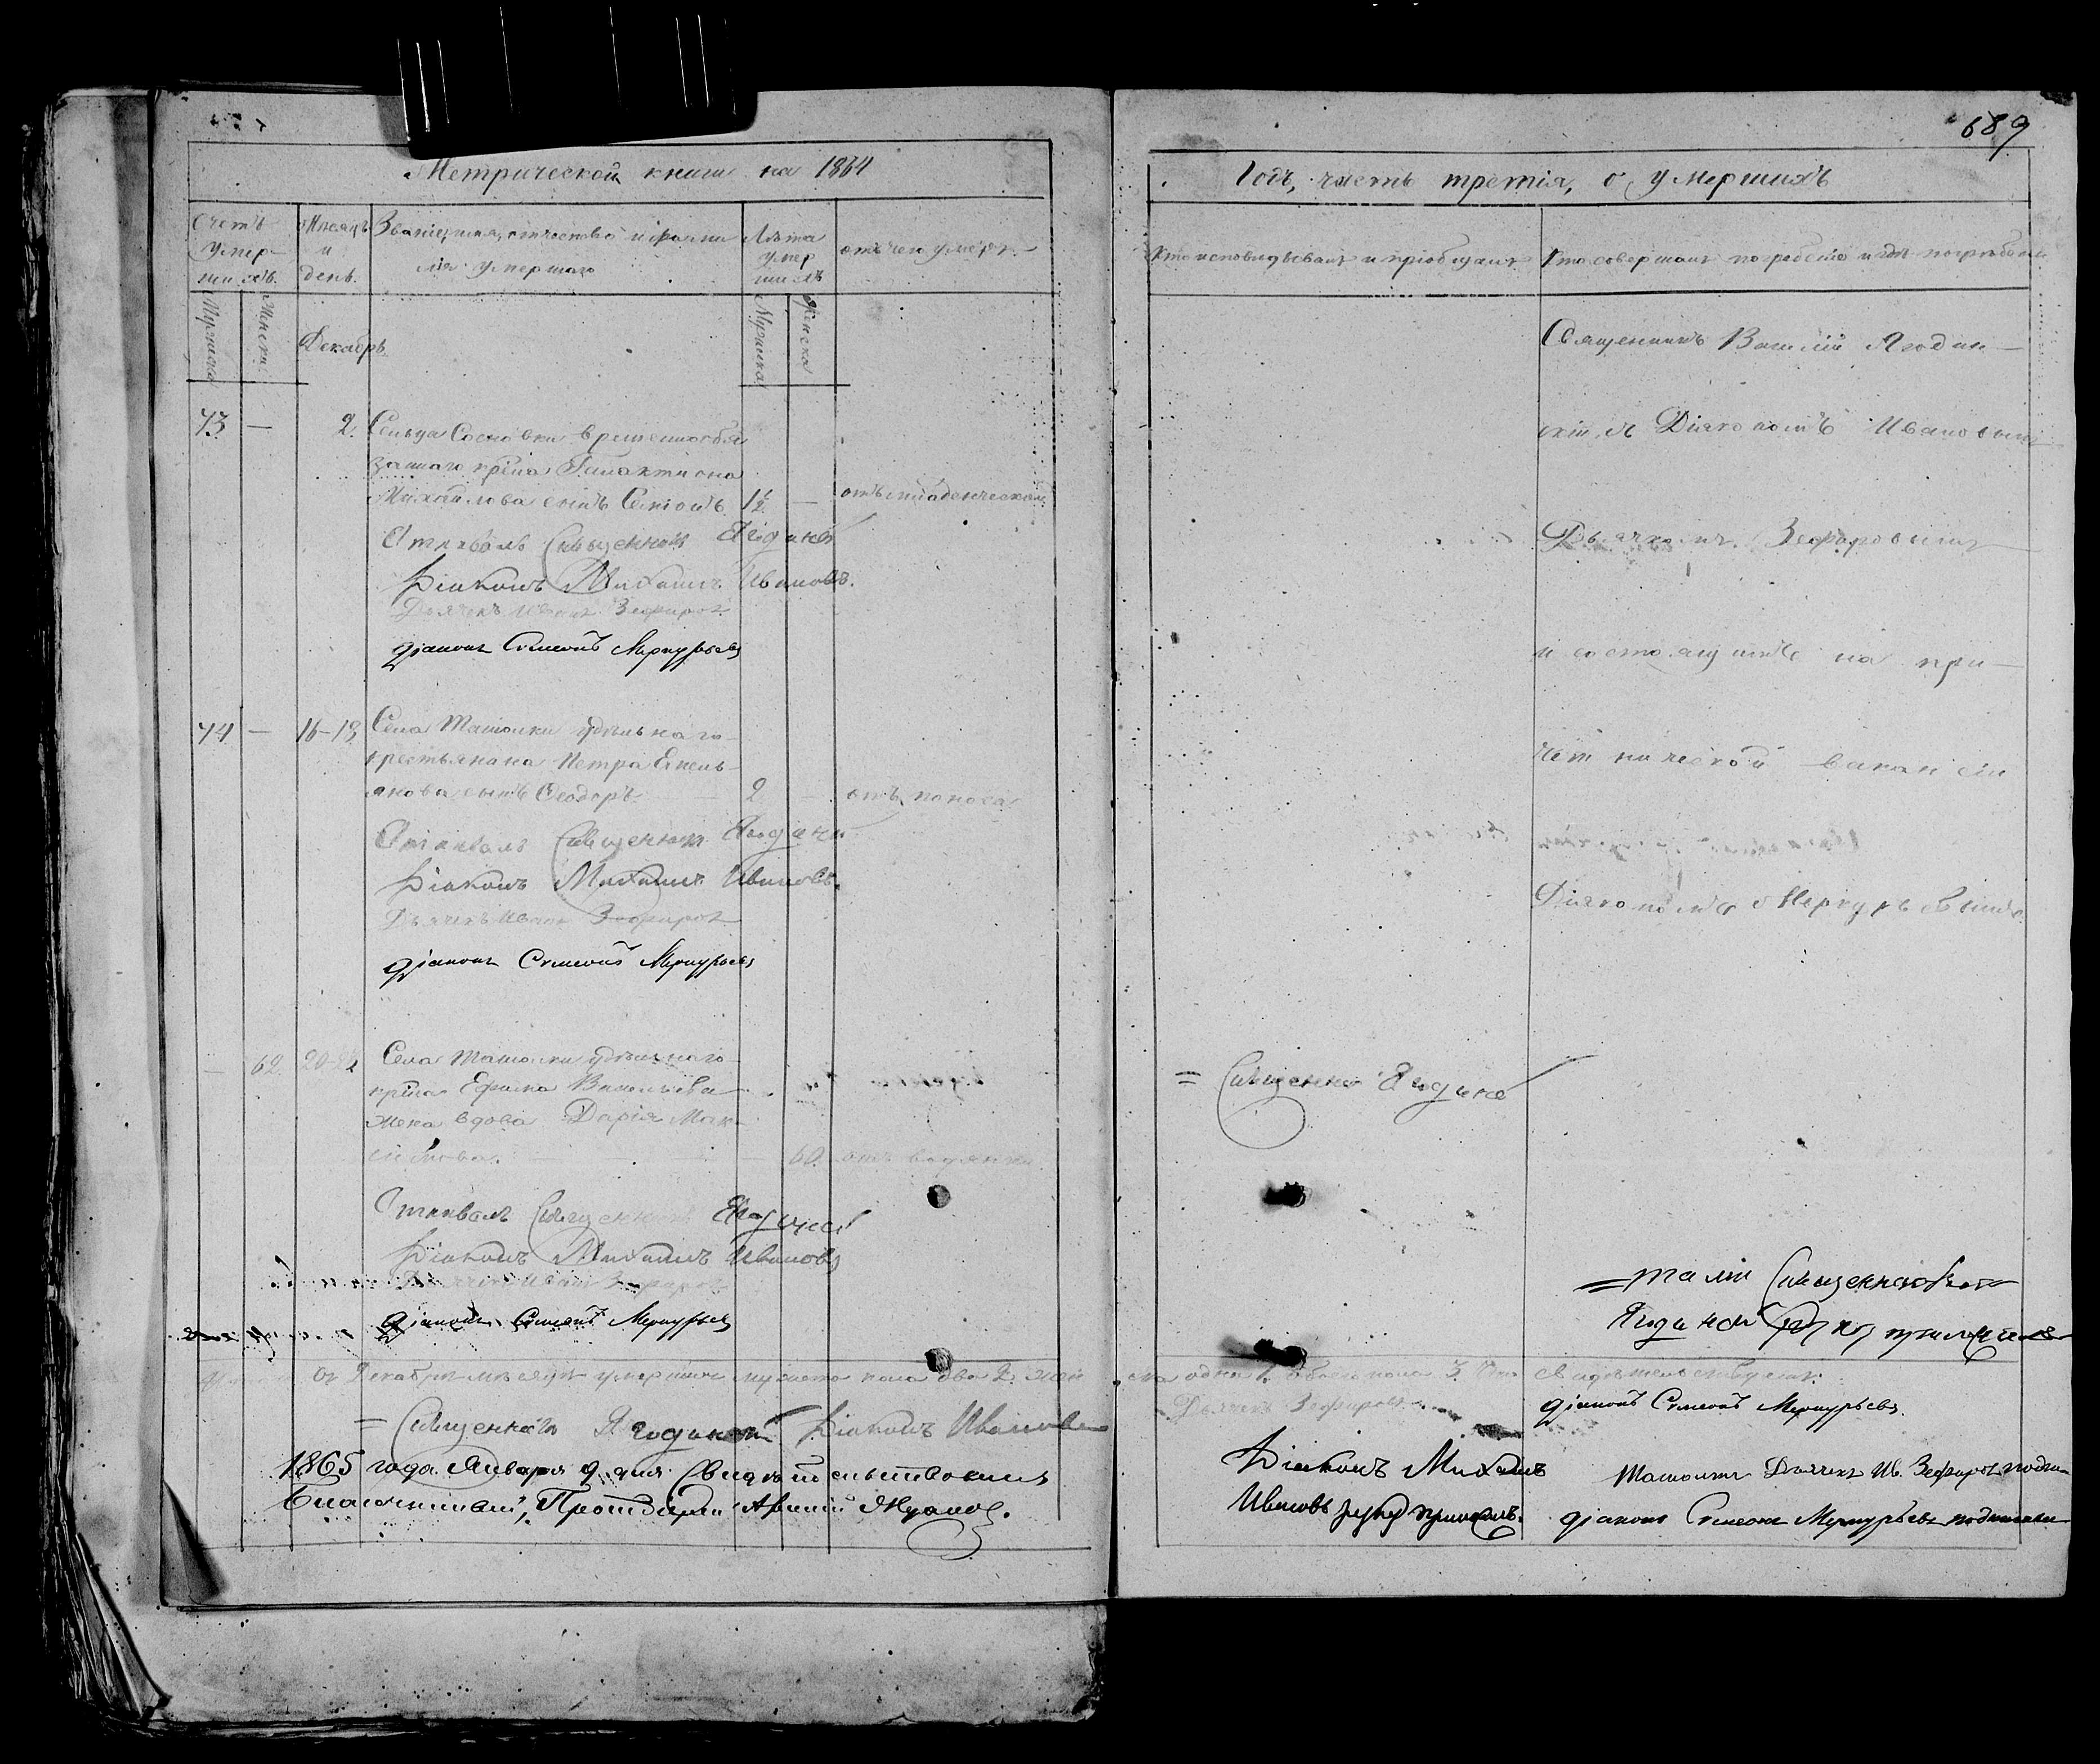 689
Метрической книги на 1864
Годъ, часть третія, о умершихъ
Счетъ умер-
шихъ.
Мужеска
Женска
Мѣсяцъ
и
день.
Званіе, имя, отчество и фами-
лія умершаго
Лѣта
умер
шихъ
Мужеска
Женска
отъ чего умеръ
Кто исповѣдывалъ и пріобщалъ
Кто совершалъ погребеніе и гдѣ погребены
Декабрь
73 — 2. Сельца Сосновки временнообя
заннаго крѣна Галактіона
Михайлова сынъ Симеонъ 1½ — отъ младенческой
Отпѣвалъ Священникъ Ягодинскій
Діаконъ Михаилъ Ивановъ.
Дьячекъ Иванъ Зефировъ
Діаконъ Симеонъ Меркурьевъ
74 — 16-19 Села Ташолки удѣльнаго
крестьянина Петра Емель-
янова сынъ Ѳеодоръ 2 — отъ поноса
Отпѣвалъ Священникъ Ягодинскій
Діаконъ Михаилъ Ивановъ.
Дьячекъ Иванъ Зефировъ
Діаконъ Симеонъ Меркурьевъ
— 62 Села Ташолки удѣльнаго
крѣна Ефима Васильева
жена вдова Дарія Мак-
симова. 60. отъ водянки
Отпѣвалъ Священникъ Ягодинскій
Діаконъ Михаилъ Ивановъ
Дьячекъ Иванъ Зефировъ
Діаконъ Симеонъ Меркурьевъ
Священникъ Василій Ягодин-
скій съ Діакономъ Ивановымъ
Дьячкомъ Зефировымъ
и состоящимъ на при-
четнической вакансіи
Діакономъ Меркурьевымъ
= Священникъ Ягодинскій
Ягодинскій руку приложилъ
въ Декабрѣ мѣсяцѣ умершихъ мужеска пола два 2. жен
ска одна 1. обоего пола 3. свидѣтельствуемъ:
= Священникъ Ягодинскій Діаконъ Ивановъ
Дьячекъ Зефировъ
Діаконъ Симеонъ Меркурьевъ
1865 года Января 9 дня Свидѣтельствовалъ
Благочинный, Протоіерей
Діаконъ Михаилъ
Ивановъ руку приложилъ.
Дьячекъ Ив. Зефировъ
Діаконъ Симеонъ Меркурьевъ